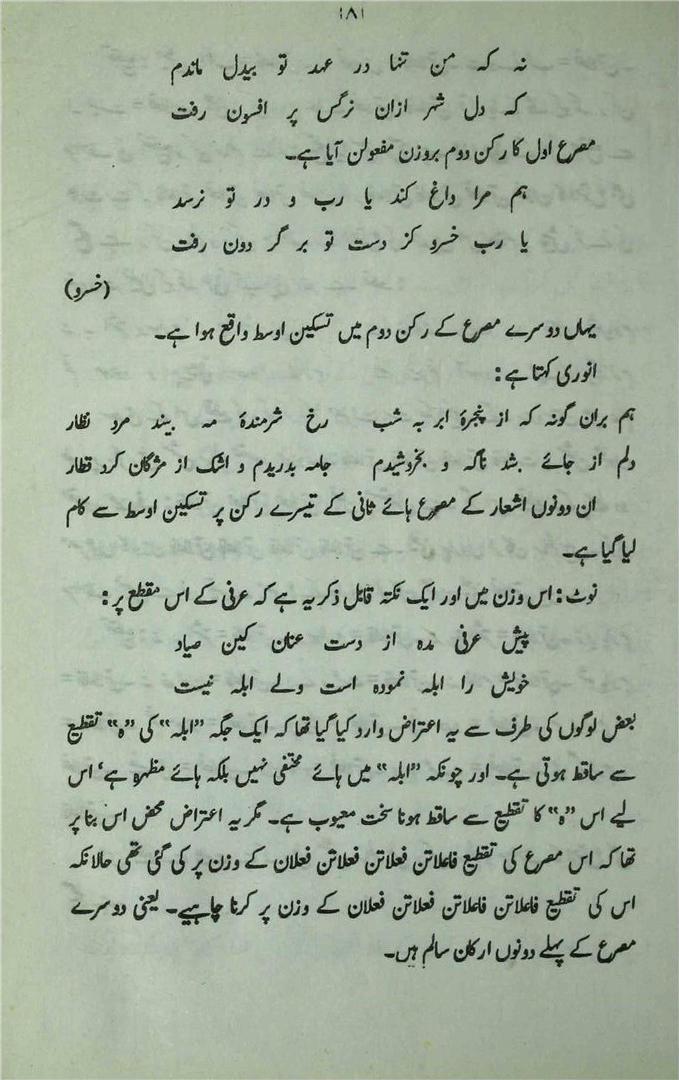 ۱۸۱
نہ کہ من تنہا در عہد تو بیدل ماندم
کہ دل شہر ازان نرگس پر افسون رفت
مصرع اول کا رکن دوم بروزن مفعولن آیا ہے۔
ہم مرا داغ کند یا رب و در تو نرسد
یا رب خسرو کز دست تو بر گردون رفت
(خسرو)
یہاں دوسرے مصرع کے رکن دوم میں تسکین اوسط واقع ہوا ہے۔
انوری کہتا ہے:
ہم بران گونہ کہ از پنجرۂ ابر بہ شب رخ شرمندۂ مہ بیند مرد نظار
دلم از جائے بشد ناگہ و بخروشیدم جامہ بدریدم و اشک از مژگان کرد قطار
ان دونوں اشعار کے مصرع ہائے ثانی کے تیسرے رکن پر تسکین اوسط سے کام
لیا گیا ہے۔
نوٹ: اس وزن میں اور ایک نکتہ قابل ذکر یہ ہے کہ عرفی کے اس مقطع پر:
پیش عرفی مدہ از دست عنان کین صیاد
خویش را ابلہ نمودہ است ولے ابلہ نیست
بعض لوگوں کی طرف سے یہ اعتراض وارد کیا گیا تھا کہ ایک جگہ ”ابلہ“ کی ”ہ“ تقطیع
سے ساقط ہوتی ہے۔ اور چونکہ ”ابلہ“ میں ہائے مختفی نہیں بلکہ ہائے مظہرہ ہے‘ اس
لیے اس ”ہ“ کا تقطیع سے ساقط ہونا سخت معیوب ہے۔ مگر یہ اعتراض محض اس بنا پر
تھا کہ اس مصرع کی تقطیع فاعلاتن فعلاتن فعلاتن فعلان کے وزن پر کی گئی تھی حالانکہ
اس کی تقطیع فاعلاتن فاعلاتن فعلاتن فعلان کے وزن پر کرنا چاہیے۔ یعنی دوسرے
مصرع کے پہلے دونوں ارکان سالم ہیں۔